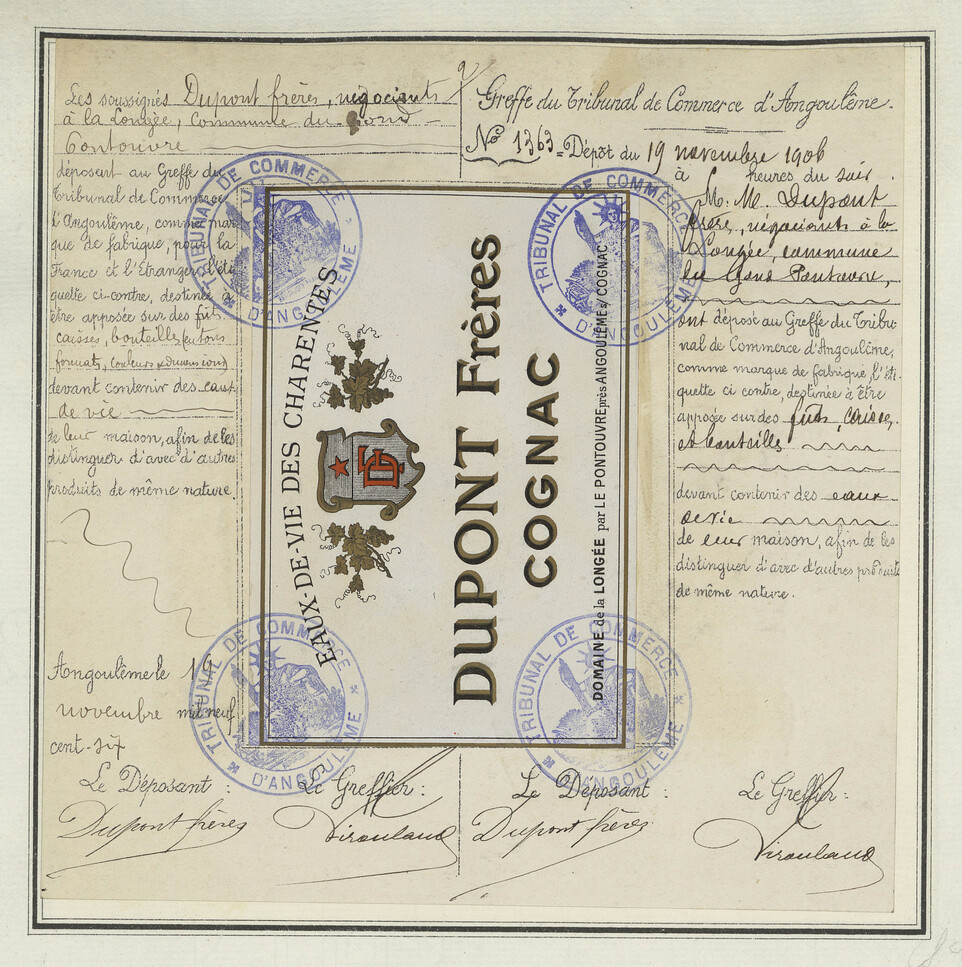 Les soussignés Dupont frères, négociants
à la Longée, Commune du Gond-
Pontouvre
déposent au Greffe du
Tribunal de Commerce
d'Angoulême, comme mar
que de fabrique, pour la
France et l'Etranger, l'éti
quette ci-contre, destinée à
être apposée sur des fûts,
caisses, bouteilles, en tous
formats, couleurs & dimensions
devant contenir des eaux
de vie
de leur maison, afin de les
distinguer d'avec d'autres
produits de même nature.
Angoulême le 19
novembre mil neuf
cent-six
Le Déposant : Le Greffier :
Dupont frères Virouland
EAUX-DE-VIE DES CHARENTES
DF
DUPONT Frères
COGNAC
DOMAINE de la LONGÉE par LE PONTOUVRE près ANGOULÊME s/ COGNAC
TRIBUNAL DE COMMERCE
D'ANGOULÊME
TRIBUNAL DE COMMERCE
D'ANGOULÊME
TRIBUNAL DE COMMERCE
D'ANGOULÊME
TRIBUNAL DE COMMERCE
D'ANGOULÊME
Greffe du Tribunal de Commerce d'Angoulême.
No 1363 = Dépôt du 19 novembre 1906
à heures du soir.
M. M. Dupont
frères, négociants à la
Longée, commune
du Gond Pontouvre,
ont déposé au Greffe du Tribu
nal de Commerce d'Angoulême,
comme marque de fabrique, l'éti
quette ci contre, destinée à être
apposée sur des fûts, caisses,
et bouteilles
devant contenir des eaux-
de vie
de leur maison, afin de les
distinguer d'avec d'autres produits
de même nature.
Le Déposant : Le Greffier :
Dupont frères Virouland